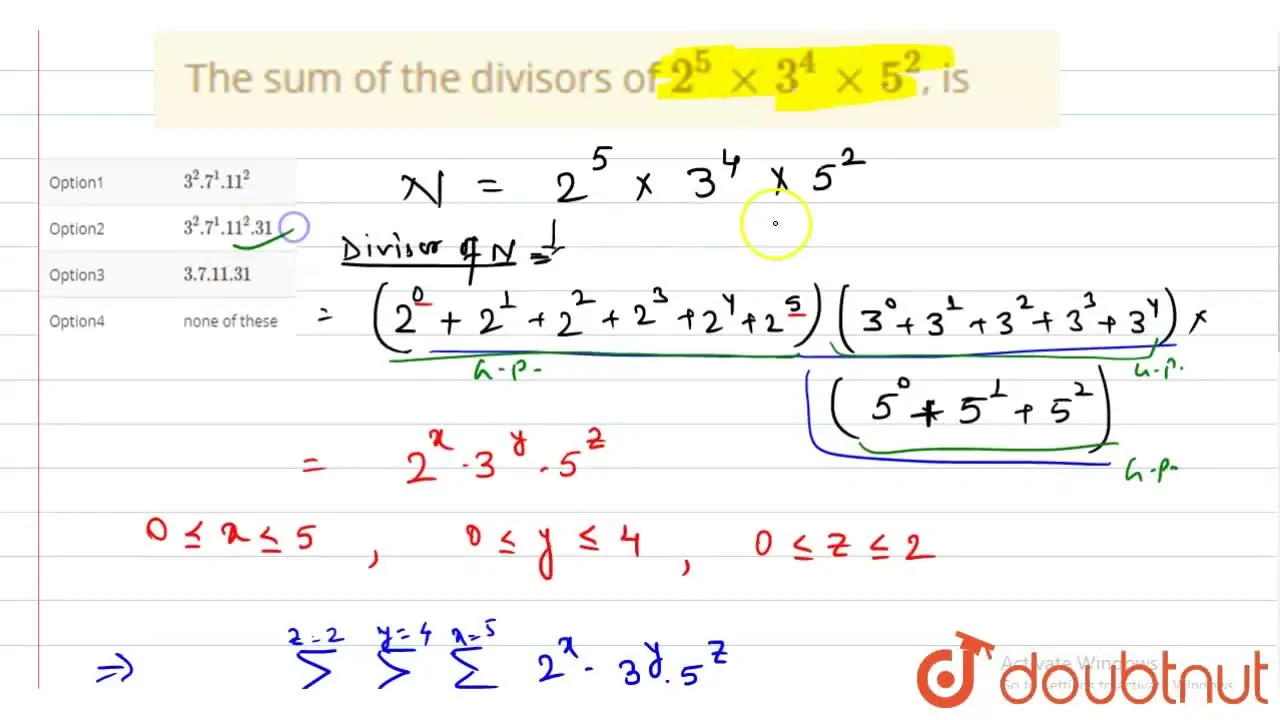 The sum of the divisors of 2⁵ × 3⁴ × 5², is
Option1 3².7¹.11²
Option2 3².7¹.11².31
Option3 3.7.11.31
Option4 none of these
N = 2⁵ × 3⁴ × 5²
Divisor of N =
= (2⁰ + 2¹ + 2² + 2³ + 2⁴ + 2⁵) (3⁰ + 3¹ + 3² + 3³ + 3⁴) ×
G.P. G.P.
(5⁰ + 5¹ + 5²)
G.P.
= 2ˣ · 3ʸ · 5ᶻ
0 ≤ x ≤ 5 , 0 ≤ y ≤ 4 , 0 ≤ z ≤ 2
z=2 y=4 x=5
⇒ Σ Σ Σ 2ˣ · 3ʸ · 5ᶻ
Activate Windows
Go to Settings to activate Windows.
doubtnut